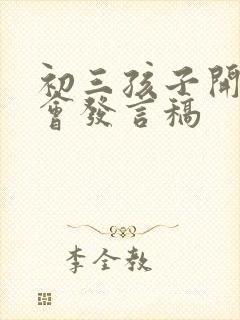 初三孩子開
會發言稿
李全教